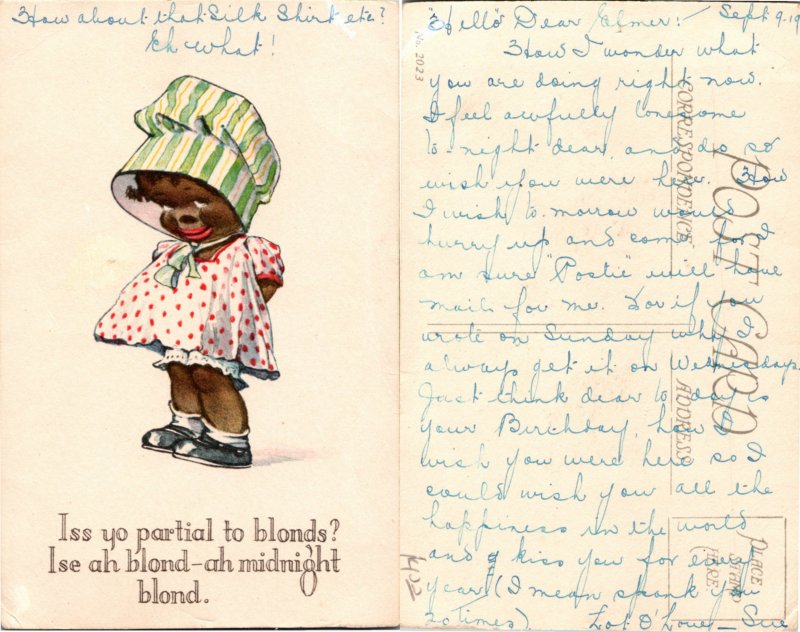 How about that Silk Shirt etc?
Eh what!
Iss yo partial to blonds?
Ise ah blond-ah midnight
blond.
"Hello" Dear Elmer:- Sept 9-19
How I wonder what
you are doing right now.
I feel awfully lonesome
to-night dear, and do so
wish you were here. How
I wish to-morrow would
hurry up and come, for I
am sure "Postie" will have
mail for me. For if you
wrote on Sunday why I
always get it on Wednesdays.
Just think dear to-day is
your Birthday, how I
wish you were here so I
could wish you all the
happiness in the world
and kiss you for every
year (I mean spank you
20 times). Lot O' Love - Sue
No. 2023
CORRESPONDENCE
POST CARD
ADDRESS
PLACE
STAMP
HERE
402